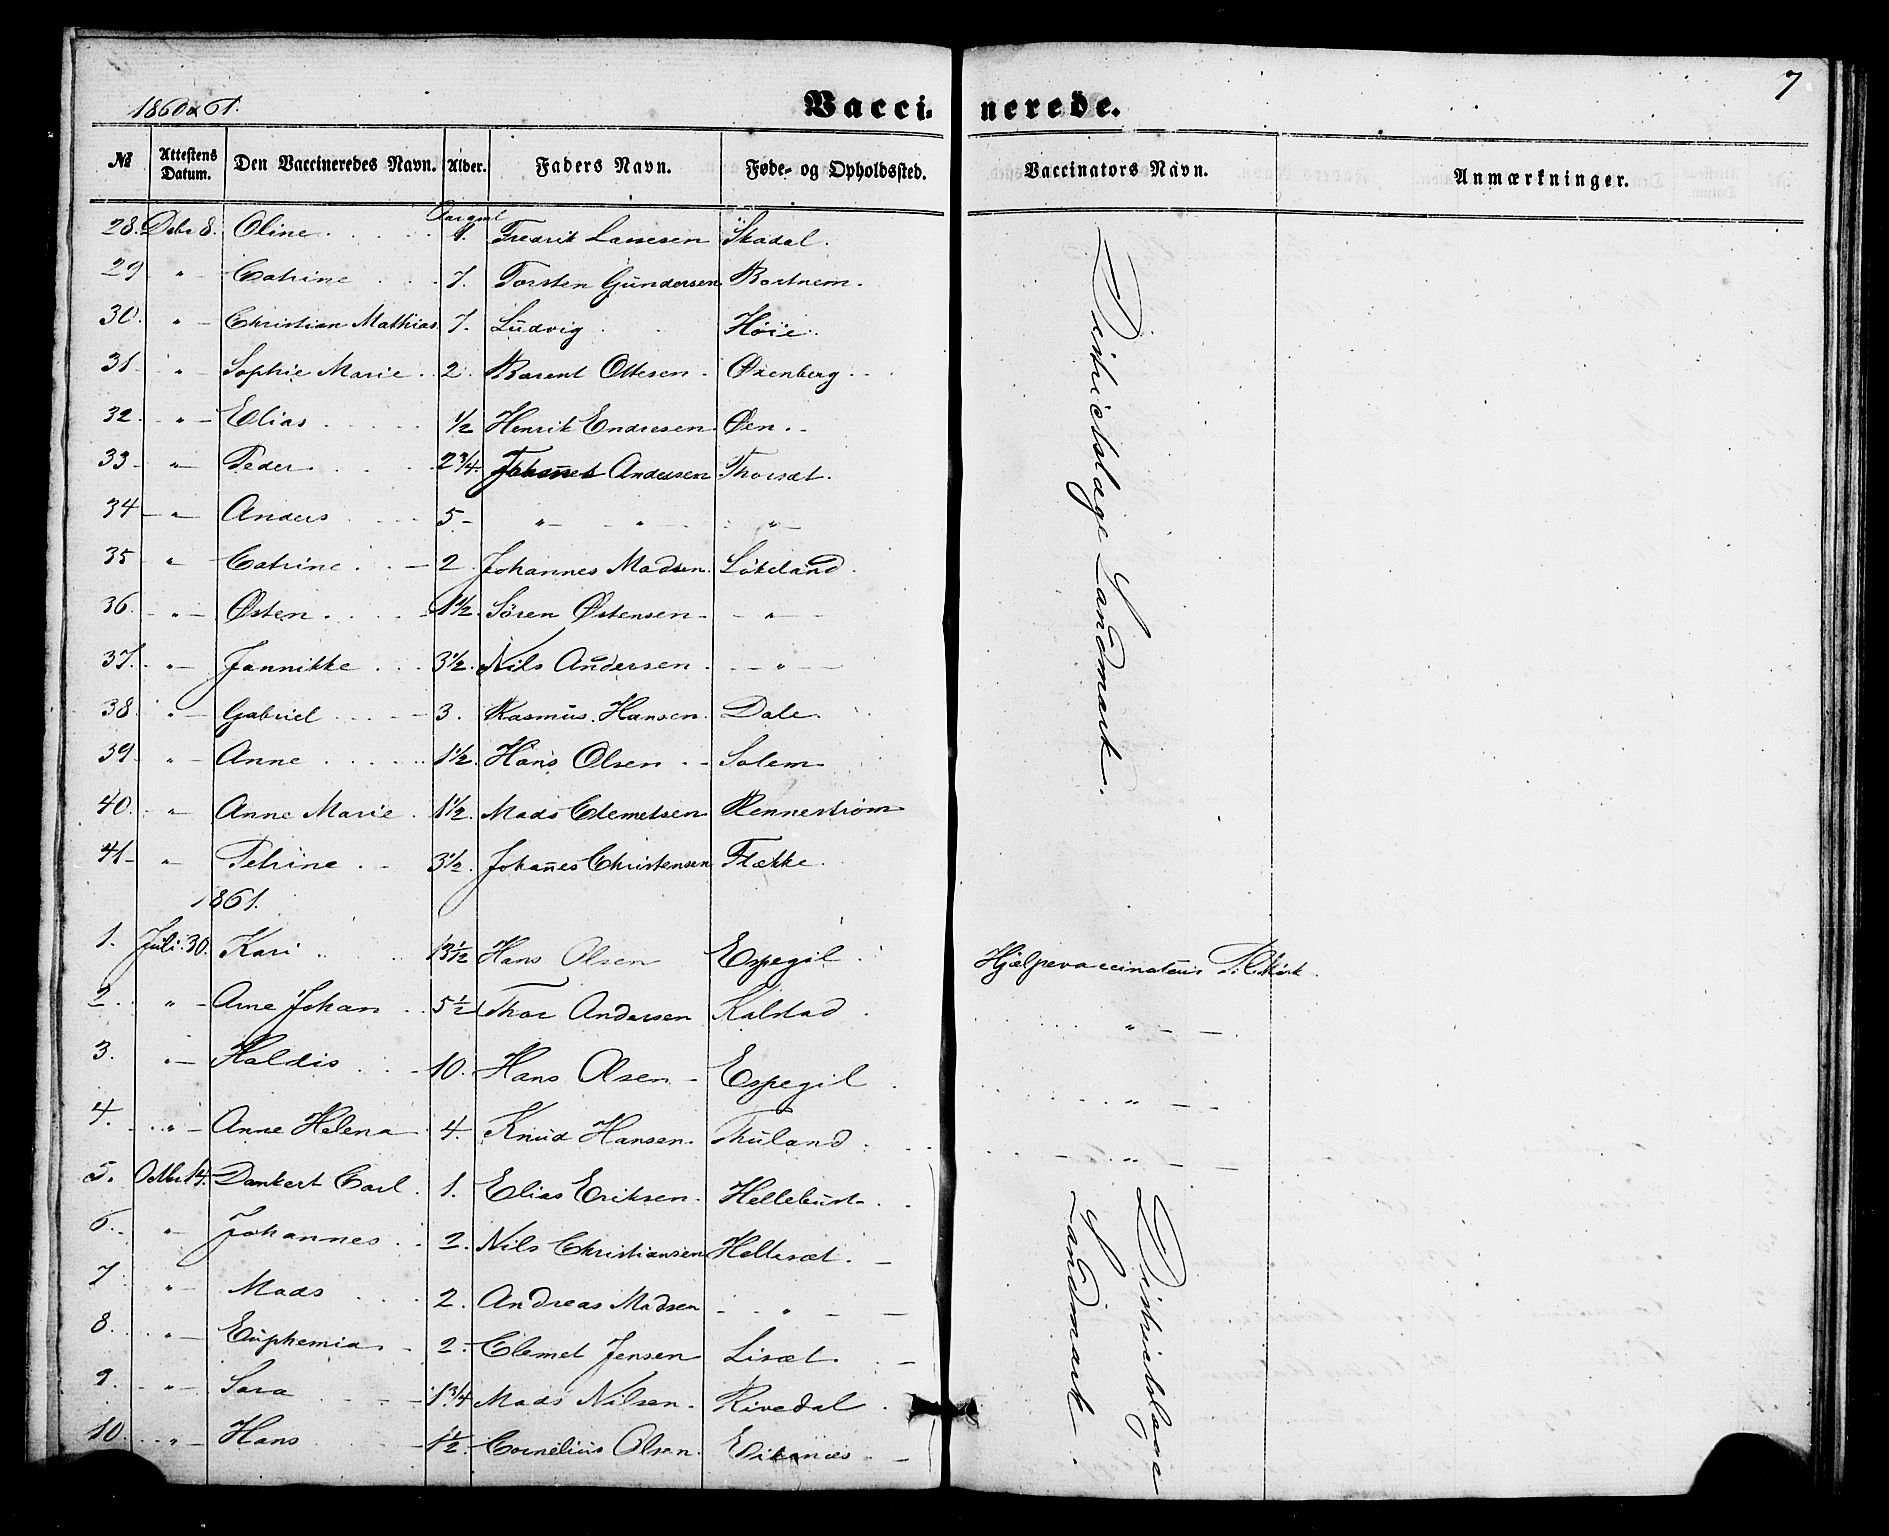 1860 & 61.
Vaccinerede.
7
№ Attestens Datum. Den Vaccineredes Navn. Alder. Faders Navn. Føde- og Opholdssted. Vaccinators Navn. Anmærkninger.
28. Debr 8. Oline 1. Fredrik Lassesen Skadal.
29 " Catrine 7. Torsten Gundersen Bortnem.
30. " Christian Mathias 7. Ludvig Høie.
31 " Sophie Marie 2. Barent Ottesen Øxenberg
32. " Elias ½ Henrik Endresen Øen.
33 " Peder 2¾ Johannes Andersen Thorsæt.
34 " Anders 5 " " "
35 " Catrine 2 Johannes Madsen Løkeland.
36. " Østen 1½. Søren Østensen "
37. " Jannikke 3½. Nils Andersen "
38. " Gabriel 3. Rasmus Hansen Dale.
39. " Anne 1½. Hans Olsen Solem
40. " Anne Marie 1½. Mads Clemetsen Rennestrøm
41 " Petrine 3½. Johannes Christensen Flække.
Districtslæge Landmark.
1861.
1. Juli 30. Kari 13½ Hans Olsen Espegil Hjælpevaccinateur
2. " Arne Johan 5½ Thor Andersen Kalstad "
3. " Haldis 10. Hans Olsen Espegil "
4. " Anne Helena 4. Knud Hansen Thuland "
5. Octbr 14. Dankert Carl 1. Elias Eriksen Hellebust
6. " Johannes 2. Nils Christiansen Hellesæt.
7. " Mads 2. Andreas Madsen "
8. " Euphemia 2. Clemet Jensen Lisæt.
9. " Sara 1¾ Mads Nilsen Rivedal
10. " Hans 1½ Cornelius Olsen
Districtslæge
Landmark.